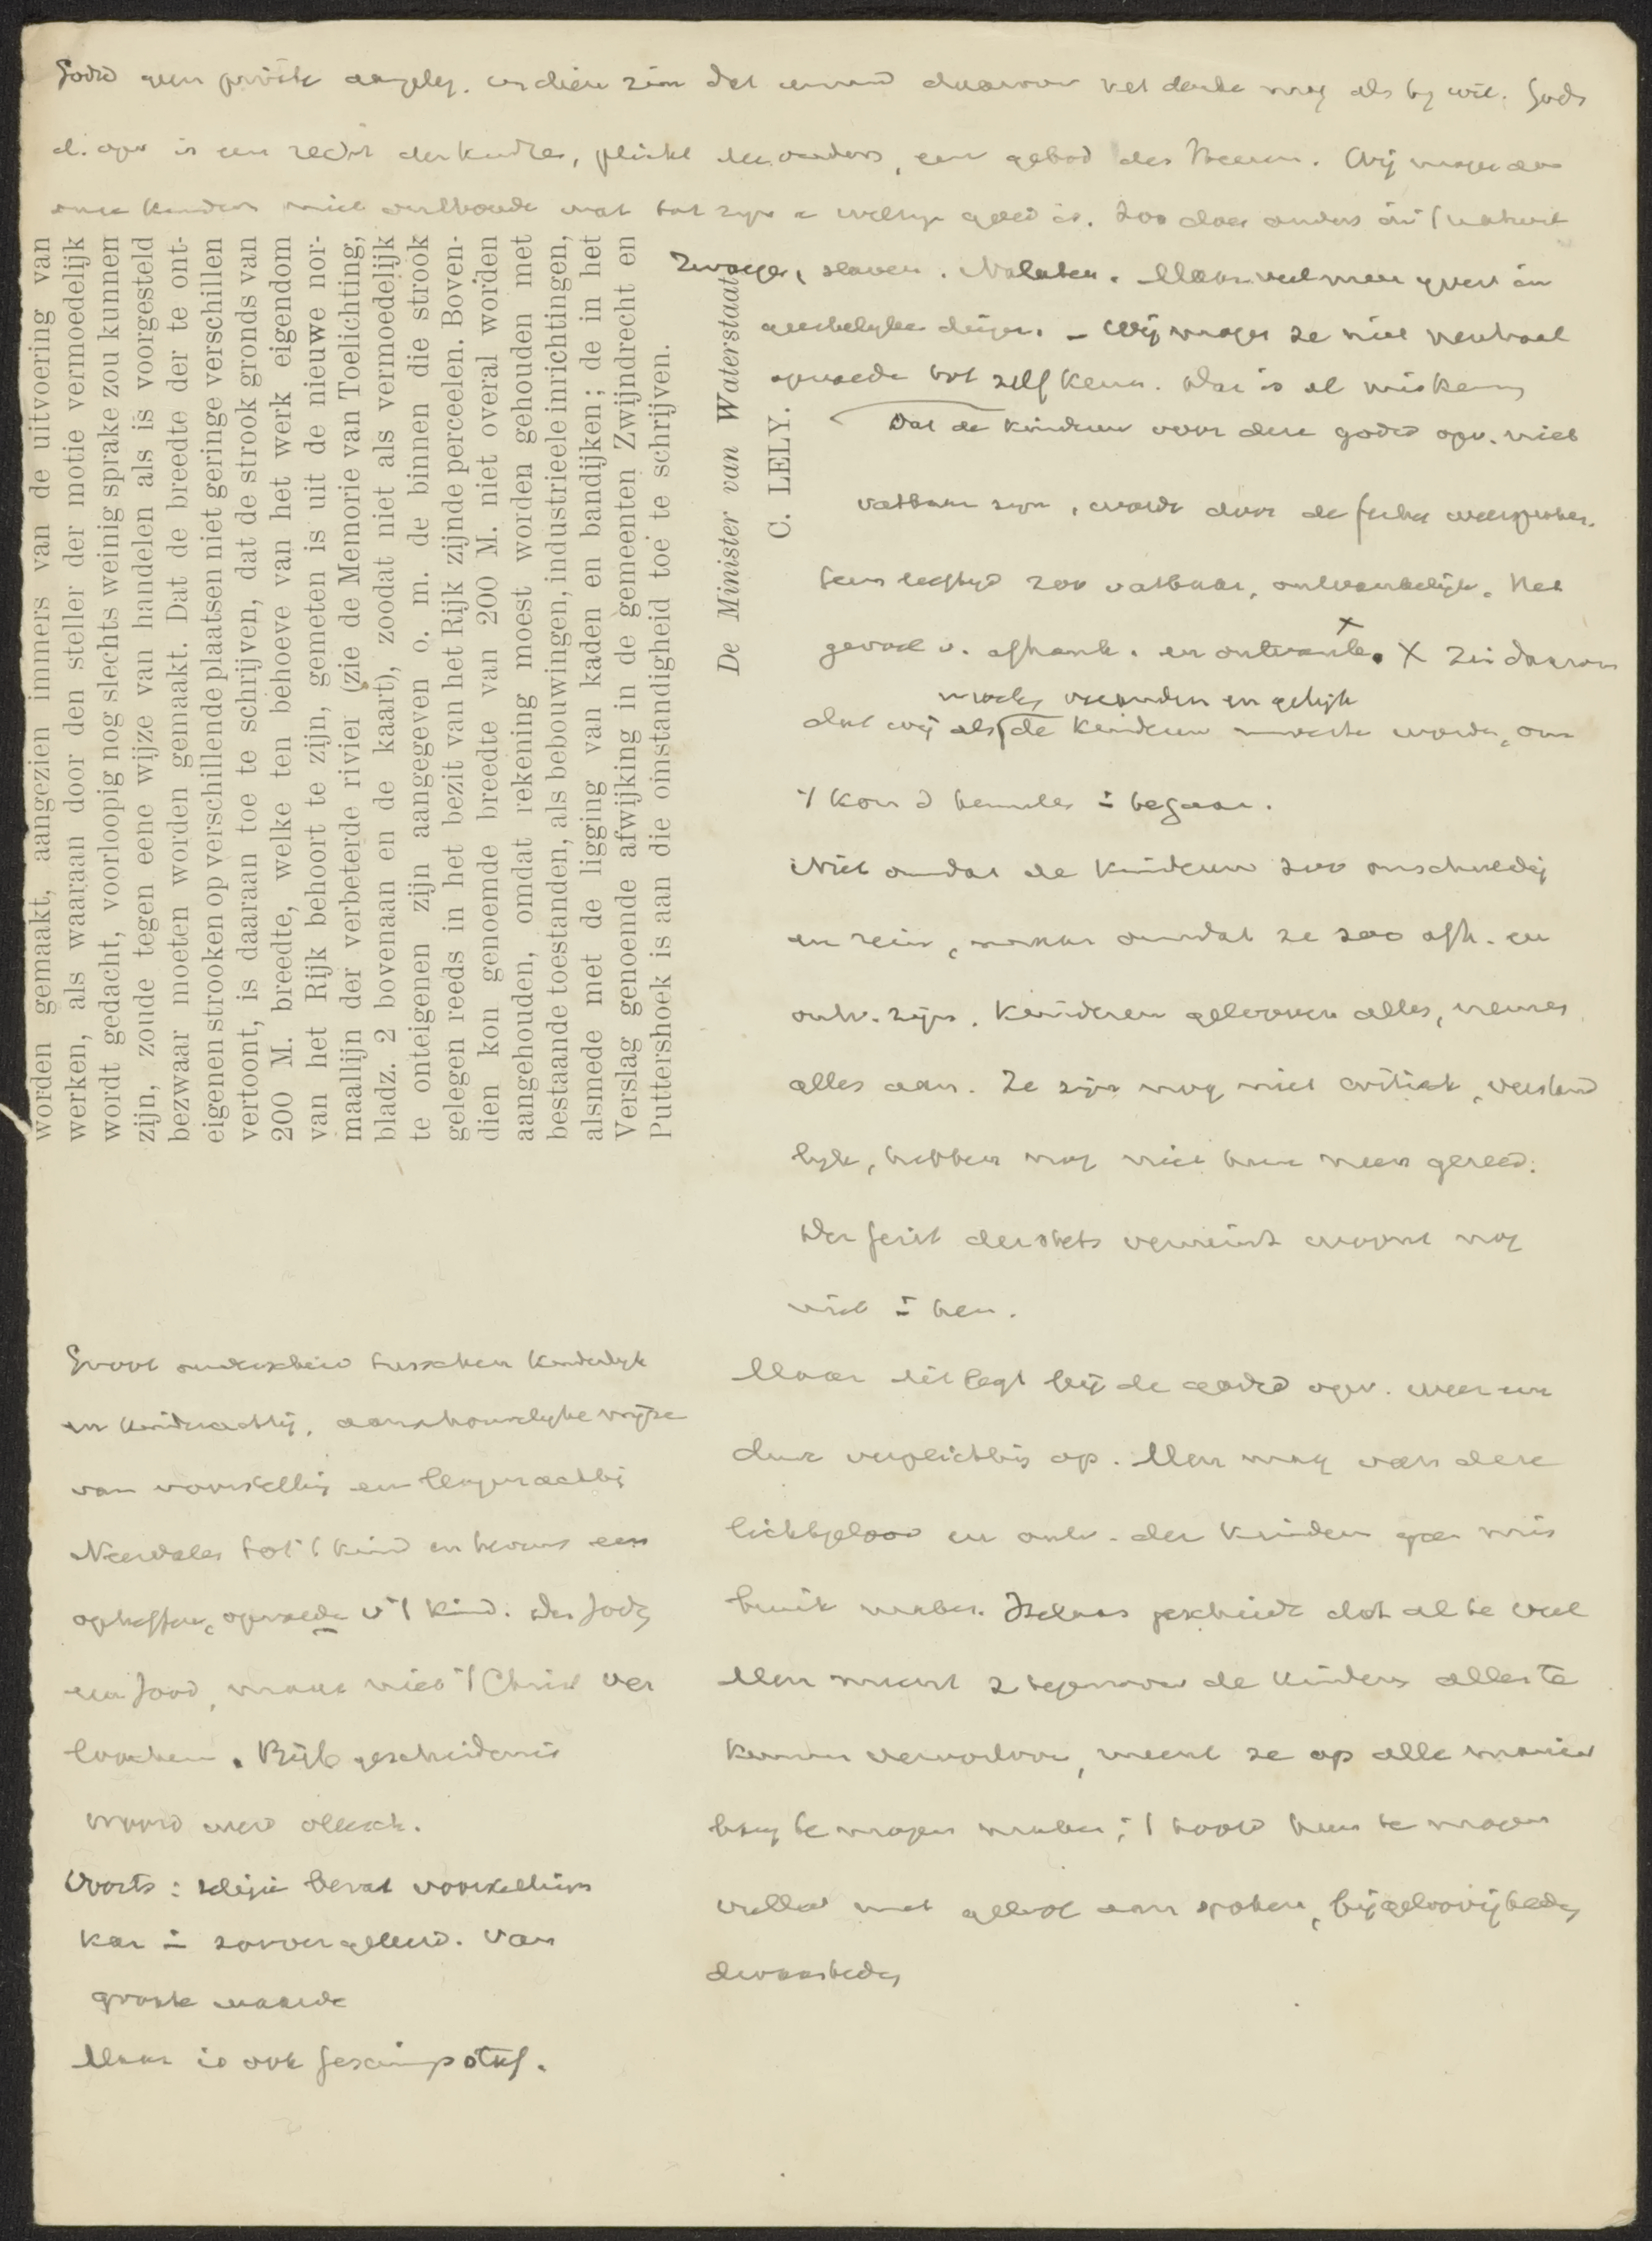 Godsd geen privéte aangeleg. in dien zin dat iemand daarover het denke mag als hy wil. Gods
d. opv is een recht der kindres, plicht der ouders, een gebod des Heeren. Wij mogen aan
onze kinderen niet onthoude wat tot zyn welzyn goed is. Zoo doet anders in 't natuurl
Zwaeger, slaven. Nalaten. Maar veel meer geven in
geestelyke dinge. - Wij mogen ze niet neutraal
opvoede tot zelf keuze. Dat is al miskenn
Dat de kinderen voor deze godsd opv. niet
vatbaar zyn, wordt door de feiten weersproken.
leeftyd zoo vatbaar, ontvankelijk. Het
gevoel v. afhank. en ontvank. X Zie daarom
moeten veranden en gelijk
dat wij als de kinderen moeten worden, om
't kon d hemeles in te gaan.
Niet omdat de kinderen zoo onschuldig
en rein, maar omdat ze zoo afh. en
ontv. zijn. Kinderen gelooven alles, nemen
alles aan. Ze zijn nog niet critisch, verstand
lyk, hebben nog niet hun neen gereed.
Der geist der stets verneint woont nog
niet in hen.
Maar dit legt bij de godsd opv. weer een
dure verplichting op. Men mag van deze
lichtgeloov en ontv. der kinderen geen mis
bruik maken. Helaas geschiedt dat al te veel
Men meent z tegenover de kinders alles te
kunnen veroorloven, meent ze op alle manier
bang te mogen maken; 't hoofd hun te mogen
vullen met geloof aan spoken, bijgeloovigheden
dwaasheden
Groot onderscheid tusschen kinderlyk
en kinderachtig, aanschouwelyke wijze
van voorstelling en leugenachtig
Neerdalen tot 't kind en tevens een
opheffen, opvoede v 't kind. Den Jode
een Jood, maar niet 't Christ ver
loochen. Bijb geschiedenis
woord
Voorts: religie bevat voorstellings
kan in zonder geleerd. van
groote waarde
Maar is ook
worden gemaakt, aangezien immers van de uitvoering van
werken, als waaraan door den steller der motie vermoedelijk
wordt gedacht, voorloopig nog slechts weinig sprake zou kunnen
zijn, zoude tegen eene wijze van handelen als is voorgesteld
bezwaar moeten worden gemaakt. Dat de breedte der te ont-
eigenen strooken op verschillende plaatsen niet geringe verschillen
vertoont, is daaraan toe te schrijven, dat de strook gronds van
200 M. breedte, welke ten behoeve van het werk eigendom
van het Rijk behoort te zijn, gemeten is uit de nieuwe nor-
maallijn der verbeterde rivier (zie de Memorie van Toelichting,
bladz. 2 bovenaan en de kaart), zoodat niet als vermoedelijk
te onteigenen zijn aangegeven o. m. de binnen die strook
gelegen reeds in het bezit van het Rijk zijnde perceelen. Boven-
dien kon genoemde breedte van 200 M. niet overal worden
aangehouden, omdat rekening moest worden gehouden met
bestaande toestanden, als bebouwingen, industrieele inrichtingen,
alsmede met de ligging van kaden en bandijken; de in het
Verslag genoemde afwijking in de gemeenten Zwijndrecht en
Puttershoek is aan die omstandigheid toe te schrijven.
De Minister van Waterstaat,
C. LELY.